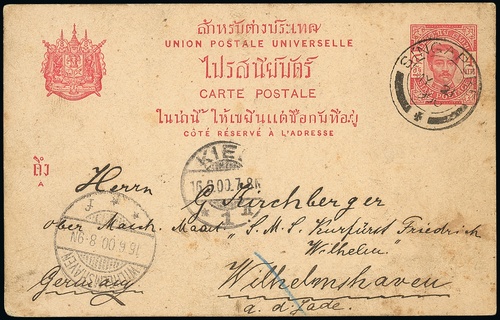 สำหรับต่างประเทศ
UNION POSTALE UNIVERSELLE
ไปรสนียบัตร์
CARTE POSTALE
ในน่านี้ ให้เขียนแต่ชื่อกับที่อยู่
CÔTÉ RÉSERVÉ À L'ADRESSE
SINGAPO
KIEL
16.6.00.7-8
1
ถึง
A
Herrn
G Kirchberger
Ober Masch. Maat "S.M.S. Kurfürst Friedrich
Wilhelm"
16.6.00.8-9N
WILHELMSHAVEN
Wilhelmshaven
Germany
a. d. Jade.